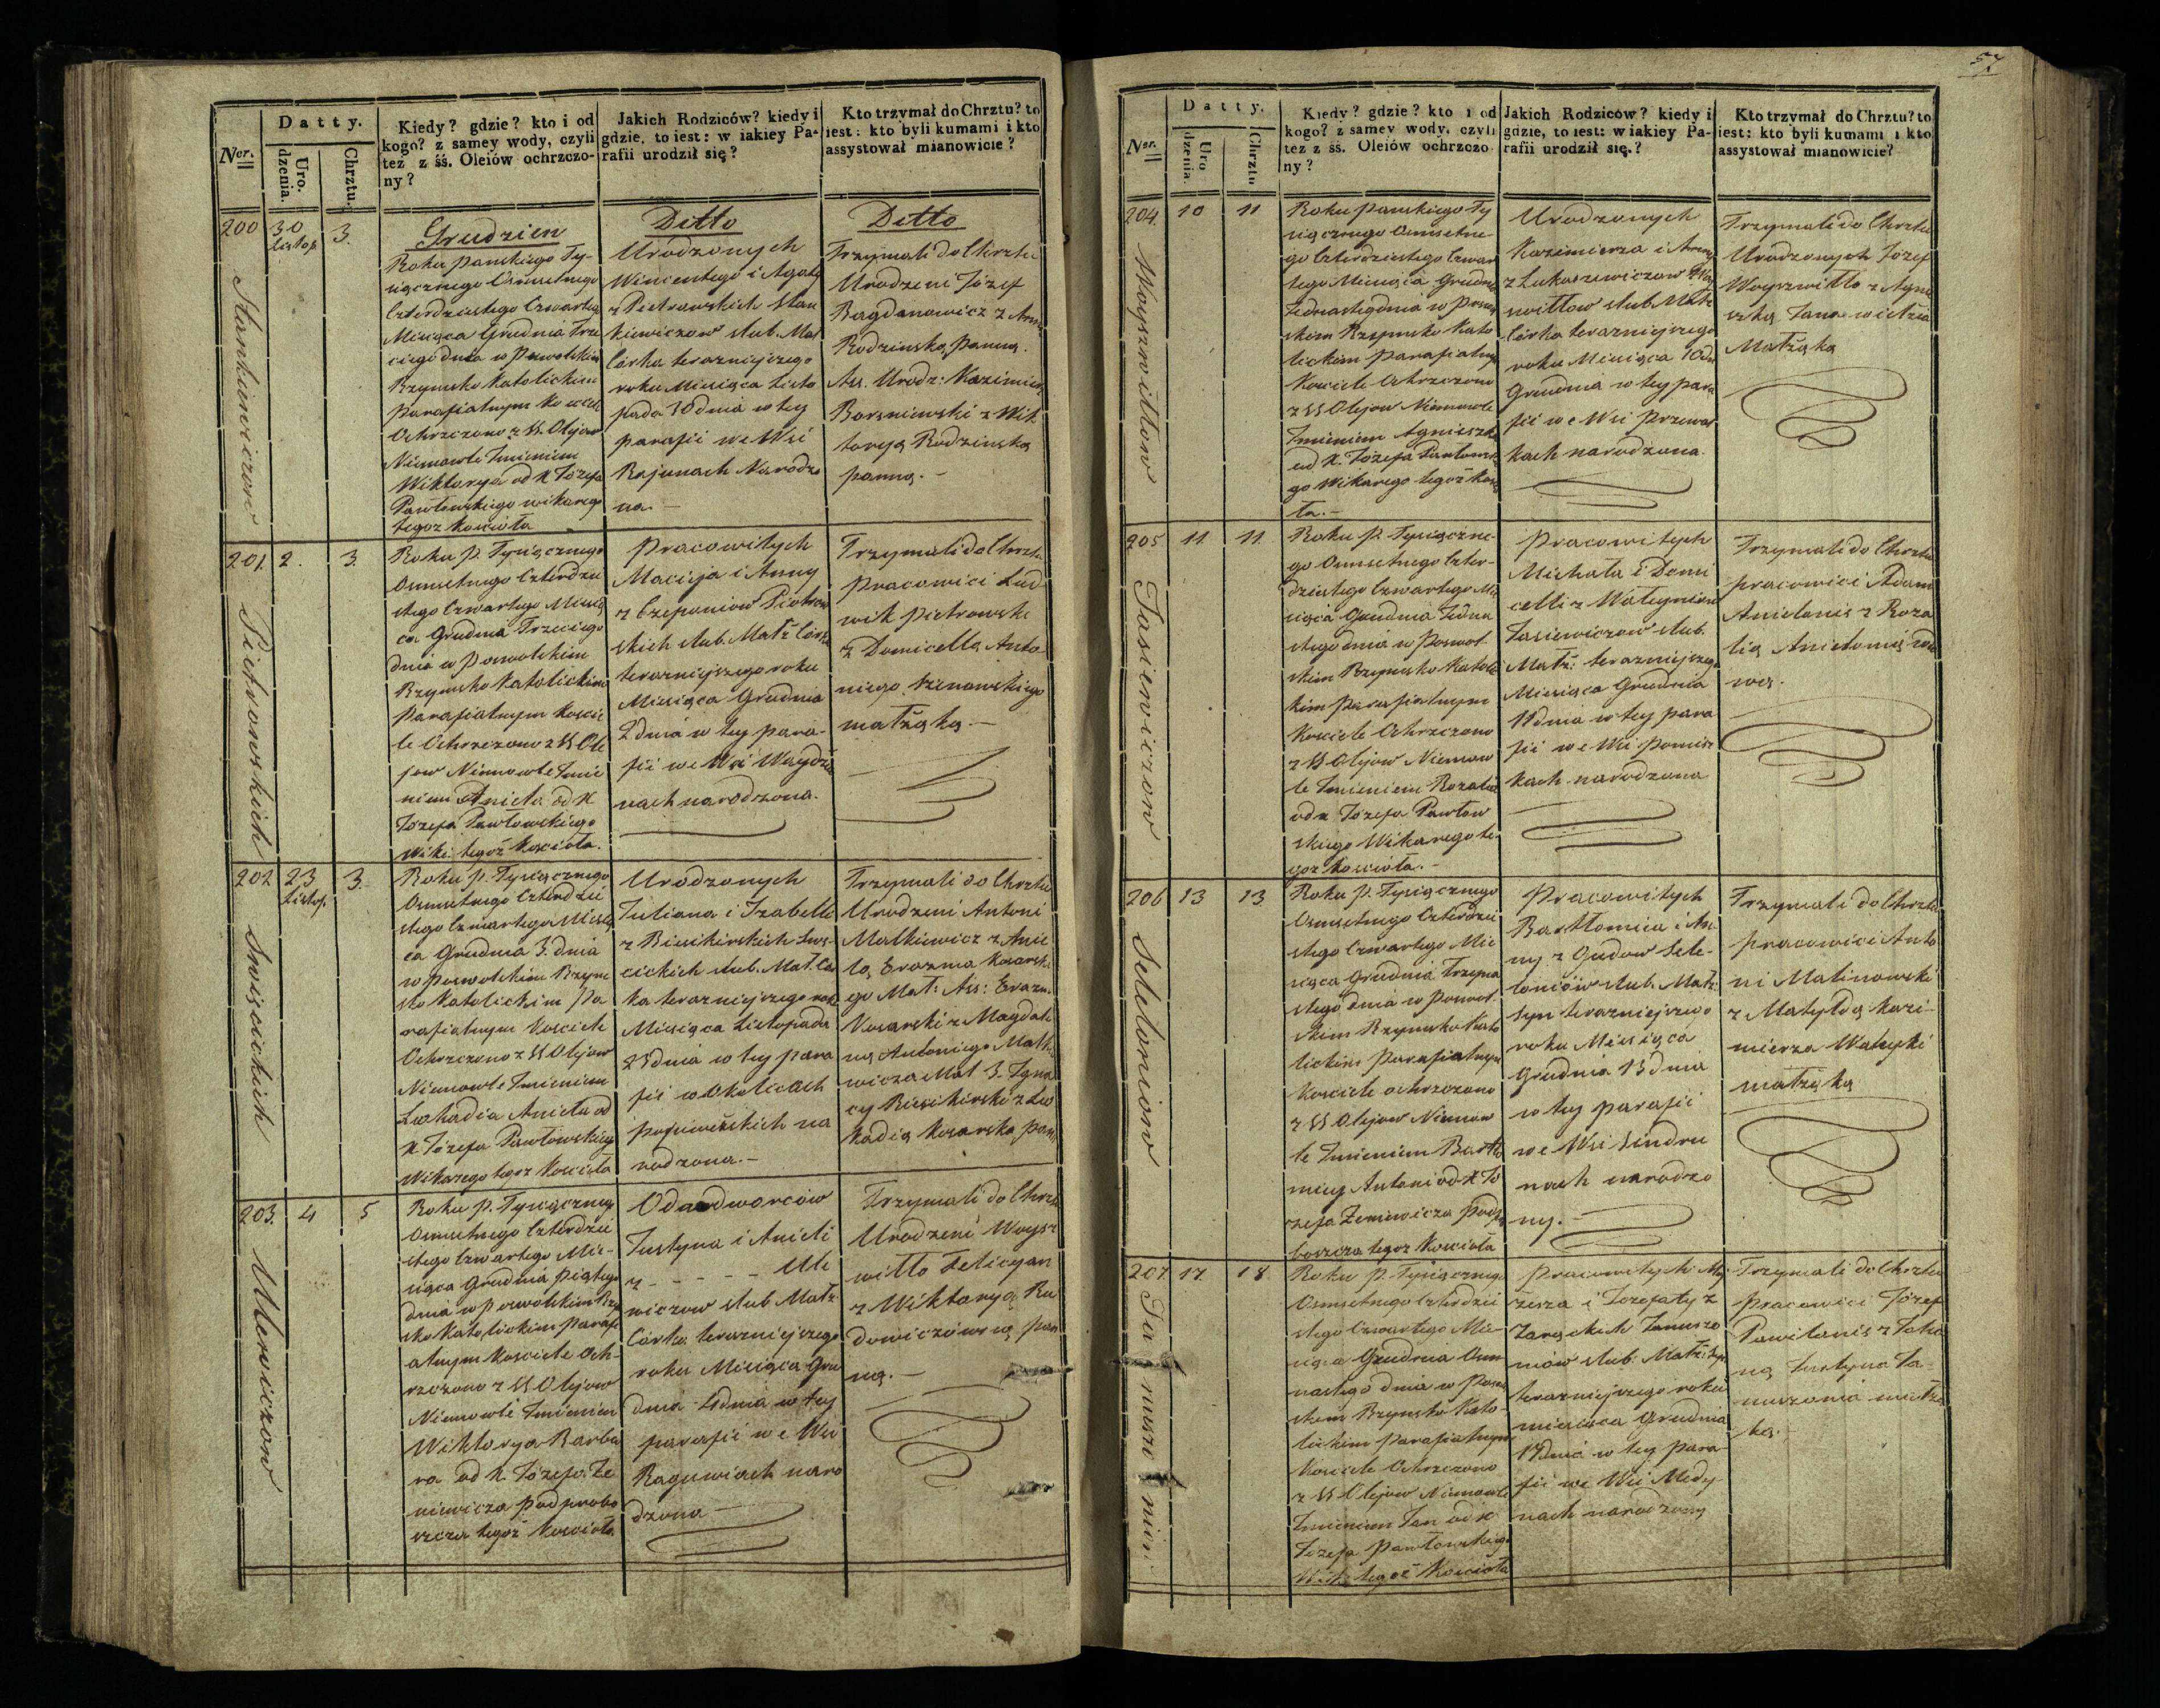 Ner.
Datty.
Urodzenia.
Chrztu.
Kiedy? gdzie? kto i od
kogo? z samey wody, czyli
też z śś. Oleiów ochrzczo-
ny?
Jakich Rodziców? kiedy i
gdzie, to iest: w iakiey Pa-
rafii urodził się?
Kto trzymał do Chrztu? to
iest: kto byli kumami i kto
assystował mianowicie?
200
30
listop.
3.
Stankiewiczow
Grudzien
Roku Panskiego Ty-
siącznego Osmsetnego
Czterdziestego Czwartego
Miesiąca Grudnia Trze
ciego dnia w Poswolskim
Rzymsko Katolickim
Parafialnym Koscie
Ochrzczono z SS. Olejow
Niemowle Imieniem
Wiktorya od X Józefa
Pawłowskiego wikarego
tegoz Kościoła
Ditto
Urodzonych
Wincentego i Agaty
z Pietrowskich Stan
kiewiczow slub. Mał
Córka teraznieyszego
roku Miesiąca Listo
pada 30 dnia w tey
parafii we Wsi
Rojunach Narodzo
na.-
Ditto
Trzymali do Chrztu
Urodzeni Józef
Bagdanowicz z Anną
Rodzinską Panną.
Ass. Urodz: Kazimierz
Borzniewski z Wik
toryą Rodzinską
panną.-
201.
2.
3.
Pietrowskich
Roku P. Tysiącznego
Osmsetnego Czterdzie
stego Czwartego Miesią
ca Grudnia Trzeciego
dnia w Poswolskim
Rzymsko Katolickim
Parafialnym Koscie
le Ochrzczono z SS Ole
jow Niemowle Imie
niem Anieta od X
Józefa Pawłowskiego
Wika. tegoż Kościoła.
Pracowitych
Macieja i Anny
z Czeponiow Piotrow
skich slub. Małż Córka
teraznieyszego roku
Miesiąca Grudnia
2 dnia w tey para-
fii we Wsi Woydzi
nach narodzona.
Trzymali do Chrztu
Pracowici Lud
wik Pietrowski
z Domicellą Anto
niego Szenowskiego
małżąką.-
202
23
listop.
3.
Swięcickich
Roku P. Tysiącznego
Osmsetnego Czterdzie
stego Czwartego Miesią
ca Grudnia 3 dnia
w Poswolskim Rzym
sko Katolickim Pa
rafialnym Kosciele
Ochrzczono z SS Olejow
Niemowle Imieniem
Leokadia Anieta od
X Józefa Pawłowskiego
Wikarego tegoz Kościoła
Urodzonych
Juliana i Izabelli
z Biesikirskich Swię-
cickich slub. Mał. Cór
ka teraznieyszego roku
Miesiąca Listopada
23 dnia w tey para
fii w Okolicach
narodzona.-
Trzymali do Chrztu
Urodzeni Antoni
Malkiewicz z Anie
lą Erazma Kosarski
ego Mał: Ass: Erazm.
Kosarski z Magdale
ną Antoniego Malki
wicza Mał 3. Igna
cy Biesikirski z Leo
kadią Kosarską pan.
203.
4
5
Ulewiczow
Roku P. Tysiącznego
Osmsetnego Czterdzie
stego Czwartego Mie-
siąca Grudnia piątego
dnia w Poswolskim Rzym
sko Katolickim Parafi
alnym Kosciele Och-
rzczono z SS Olejow
Niemowle Imieniem
Wiktorya Barba
ra od X. Józefa Że
niewicza podprobo
szcza tegoż Kościoła
Odnodworców
Justyna i Anieli
z - - - - - Ule
wiczow slub Małż
Córka teraznieyszego
roku Miesiąca Gru
dnia 4 dnia w tey
parafii we Wsi
Raguwiach naro
dzona-
Trzymali do Chrztu
Urodzeni Woysz
witto Felicyan
z Wiktoryą Ru
dowiczówną pan
ną.-
57
Ner.
Datty.
Urodzenia.
Chrztu
Kiedy? gdzie? kto i od
kogo? z samey wody, czyli
też z śś. Oleiów ochrzczo-
ny?
Jakich Rodziców? kiedy i
gdzie, to iest: w iakiey Pa-
rafii urodził się.?
Kto trzymał do Chrztu? to
iest: kto byli kumami i kto
assystował mianowicie?
204.
10
11
Woyszwiłłow
Roku Panskiego Ty
siącznego Osmsetne-
go Czterdziestego Czwar
tego Miesiąca Grudnia
Jednastego dnia w Poswol
skim Rzymsko Kato
lickim Parafialnym
Kosciele Ochrzczono
z SS Olejow Niemowle
Imieniem Agnieszka
od X. Józefa Pawłowskie
go Wikarego tegoż Kościo
ła.-
Urodzonych
Kazimierza i Anny
z Łukaszewiczow Woy
swiłłow slub. Małż
Córka teraznieyszego
roku Miesiąca 10 dn
Grudnia w tey para
fii we Wsi Przewoz
kach narodzona.
Trzymali do Chrztu
Urodzonych Józef
Woyszwiłło z Agni
szką
Małżąką
205
11
11
Jasiewiczow
Roku P. Tysiączne-
go Osmsetnego Czter-
dziestego Czwartego Mie
siąca Grudnia Jedna
stego dnia w Poswol
skim Rzymsko Katolic
kim Parafialnym
Kosciele Ochrzczono
z SS Olejow Niemow
le Imieniem Rozalia
od X Józefa Pawłow
skiego Wikarego te
goż Kościoła.-
Pracowitych
Michała i Domi
celli z Wałeyniow
Jasiewiczow slub.
Małż: teraznieyszego
Miesiąca Grudnia
11 dnia w tey para
fii we Wsi Pomisz
kach narodzona
Trzymali do Chrztu
pracowici Adam
Anielonis z Roza
lią Anielonią wdo
wą.
206
13
13
Seleloniow
Roku P. Tysiącznego
Osmsetnego Czterdzie
stego Czwartego Mie
siąca Grudnia Trzyna
stego dnia w Poswol
skim Rzymsko Kato
lickim Parafialnym
Kosciele ochrzczono
z SS Olejow Niemow
le Imieniem Bartło
miey Antoni od X Jó
zefa Żeniewicza Podpro
boszcza tegoż Kościoła
Pracowitych
Bartłomieia i An-
ny z Gudow Sele-
loniów slub. Małż:
Syn teraznieyszego
roku Miesiąca
Grudnia 13 dnia
w tey parafii
we Wsi Sindru
nach narodzo
ny.-
Trzymali do Chrztu
pracowici Anto
ni Malinowski
z Matyldą Kazi-
mierza Wałeyki
małżąką
207.
17
18
Roku P. Tysiącznego
Osmsetnego Czterdzie
stego Czwartego Mie-
siąca Grudnia Osm
nastego dnia w Poswol
skim Rzymsko Kato-
lickim Parafialnym
Kosciele Ochrzczono
z SS Olejow Niemowle
Imieniem Jan od X
Józefa Pawłowskiego
Wik. tegoż Kościoła
Pracowitych Moy
żesza i Jozefaty z
Zarąckich Januszo
niów slub: Małż: Syn
teraznieyszego roku
miesiąca Grudnia
17 dnia w tey para-
fii we Wsi Medy
nach narodzony
Trzymali do Chrztu
pracowici Józef
Pawilonis z Joha
ną Justyna Ja-
nuszonia małżą
ką.-